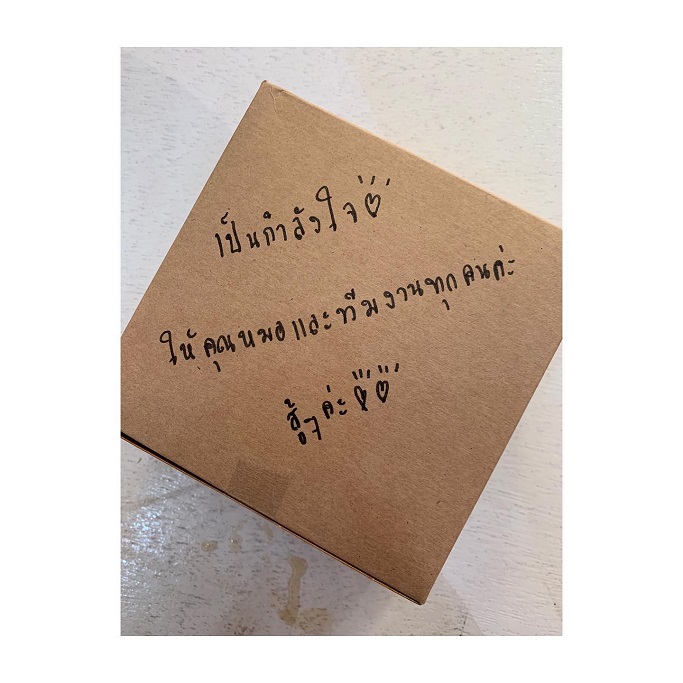 เป็นกำลังใจ
ให้คุณหมอและทีมงานทุกคนค่ะ
สู้ๆค่ะ